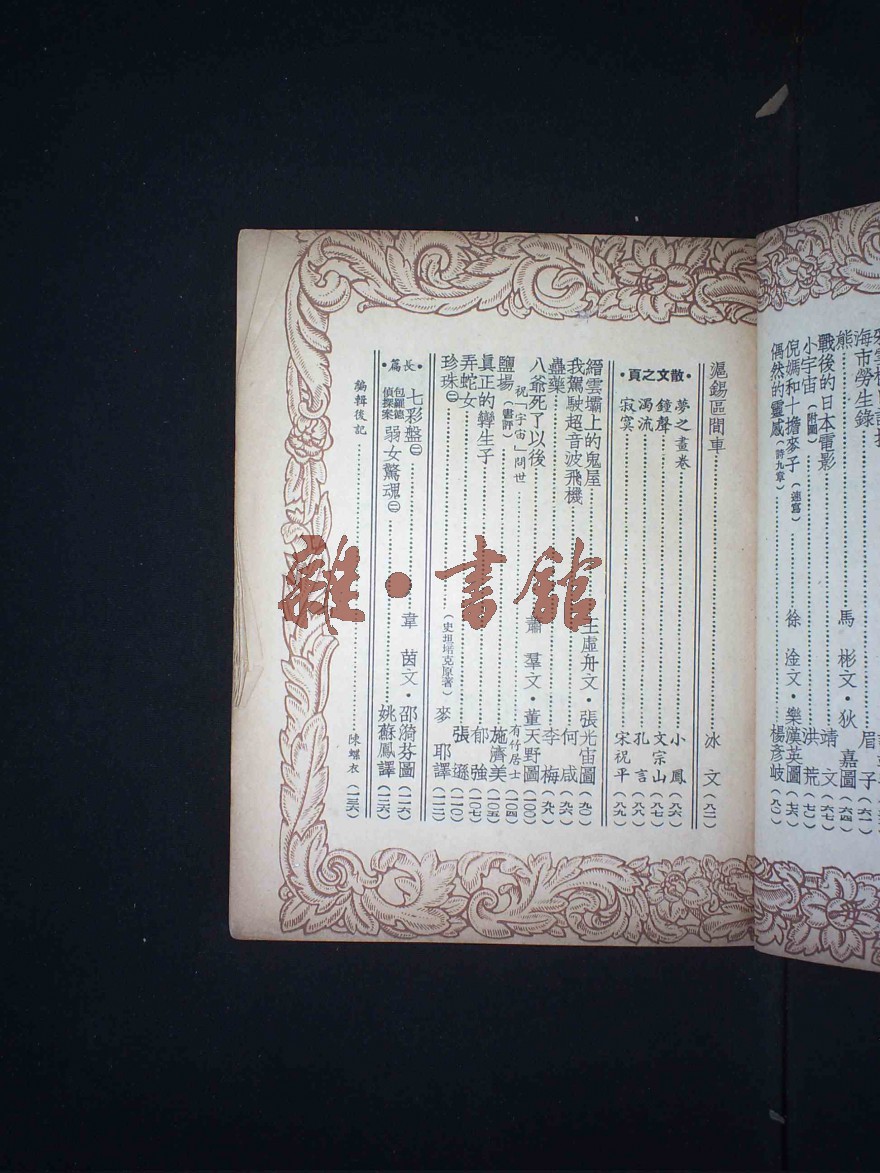 海市勞生錄⋯⋯眉子（六一）
熊⋯⋯馬彬文·狄嘉圖（六四）
戰後的日本電影⋯⋯靖文（七四）
小宇宙（附圖）⋯⋯洪荒（七五）
倪媽和十擔麥子（速寫）⋯⋯徐淦文·樂漢英圖（七六）
偶然的靈感（詩九章）⋯⋯楊彥岐（八〇）
滬錫區間車⋯⋯冰文（八二）
·散文之頁·
夢之畫卷⋯⋯小鳳（八六）
鐘聲⋯⋯文宗山（八七）
濁流⋯⋯孔言（八八）
寂寞⋯⋯宋祝平（八九）
縉雲壩上的鬼屋⋯⋯王虛舟文·張光宙圖（九〇）
我駕駛超音波飛機⋯⋯何咸（九六）
蠱藥⋯⋯李梅（九八）
八爺死了以後⋯⋯蕭羣文·董天野圖（一〇〇）
祝「宇宙」問世⋯⋯有竹居士（一〇四）
鹽場（書評）⋯⋯施濟美（一〇五）
眞正的孿生子⋯⋯郁強（一〇七）
弄蛇女⋯⋯張遜（一一〇）
珍珠㊁⋯⋯（史坦培克原著）麥耶譯（一一二）
·長篇·
七彩盤㊁⋯⋯韋茵文·邵漪芬圖（一一六）
包羅德偵探案 弱女驚魂㊁⋯⋯姚蘇鳳譯（一二六）
編輯後記⋯⋯陳蝶衣（一三六）
雜·書館